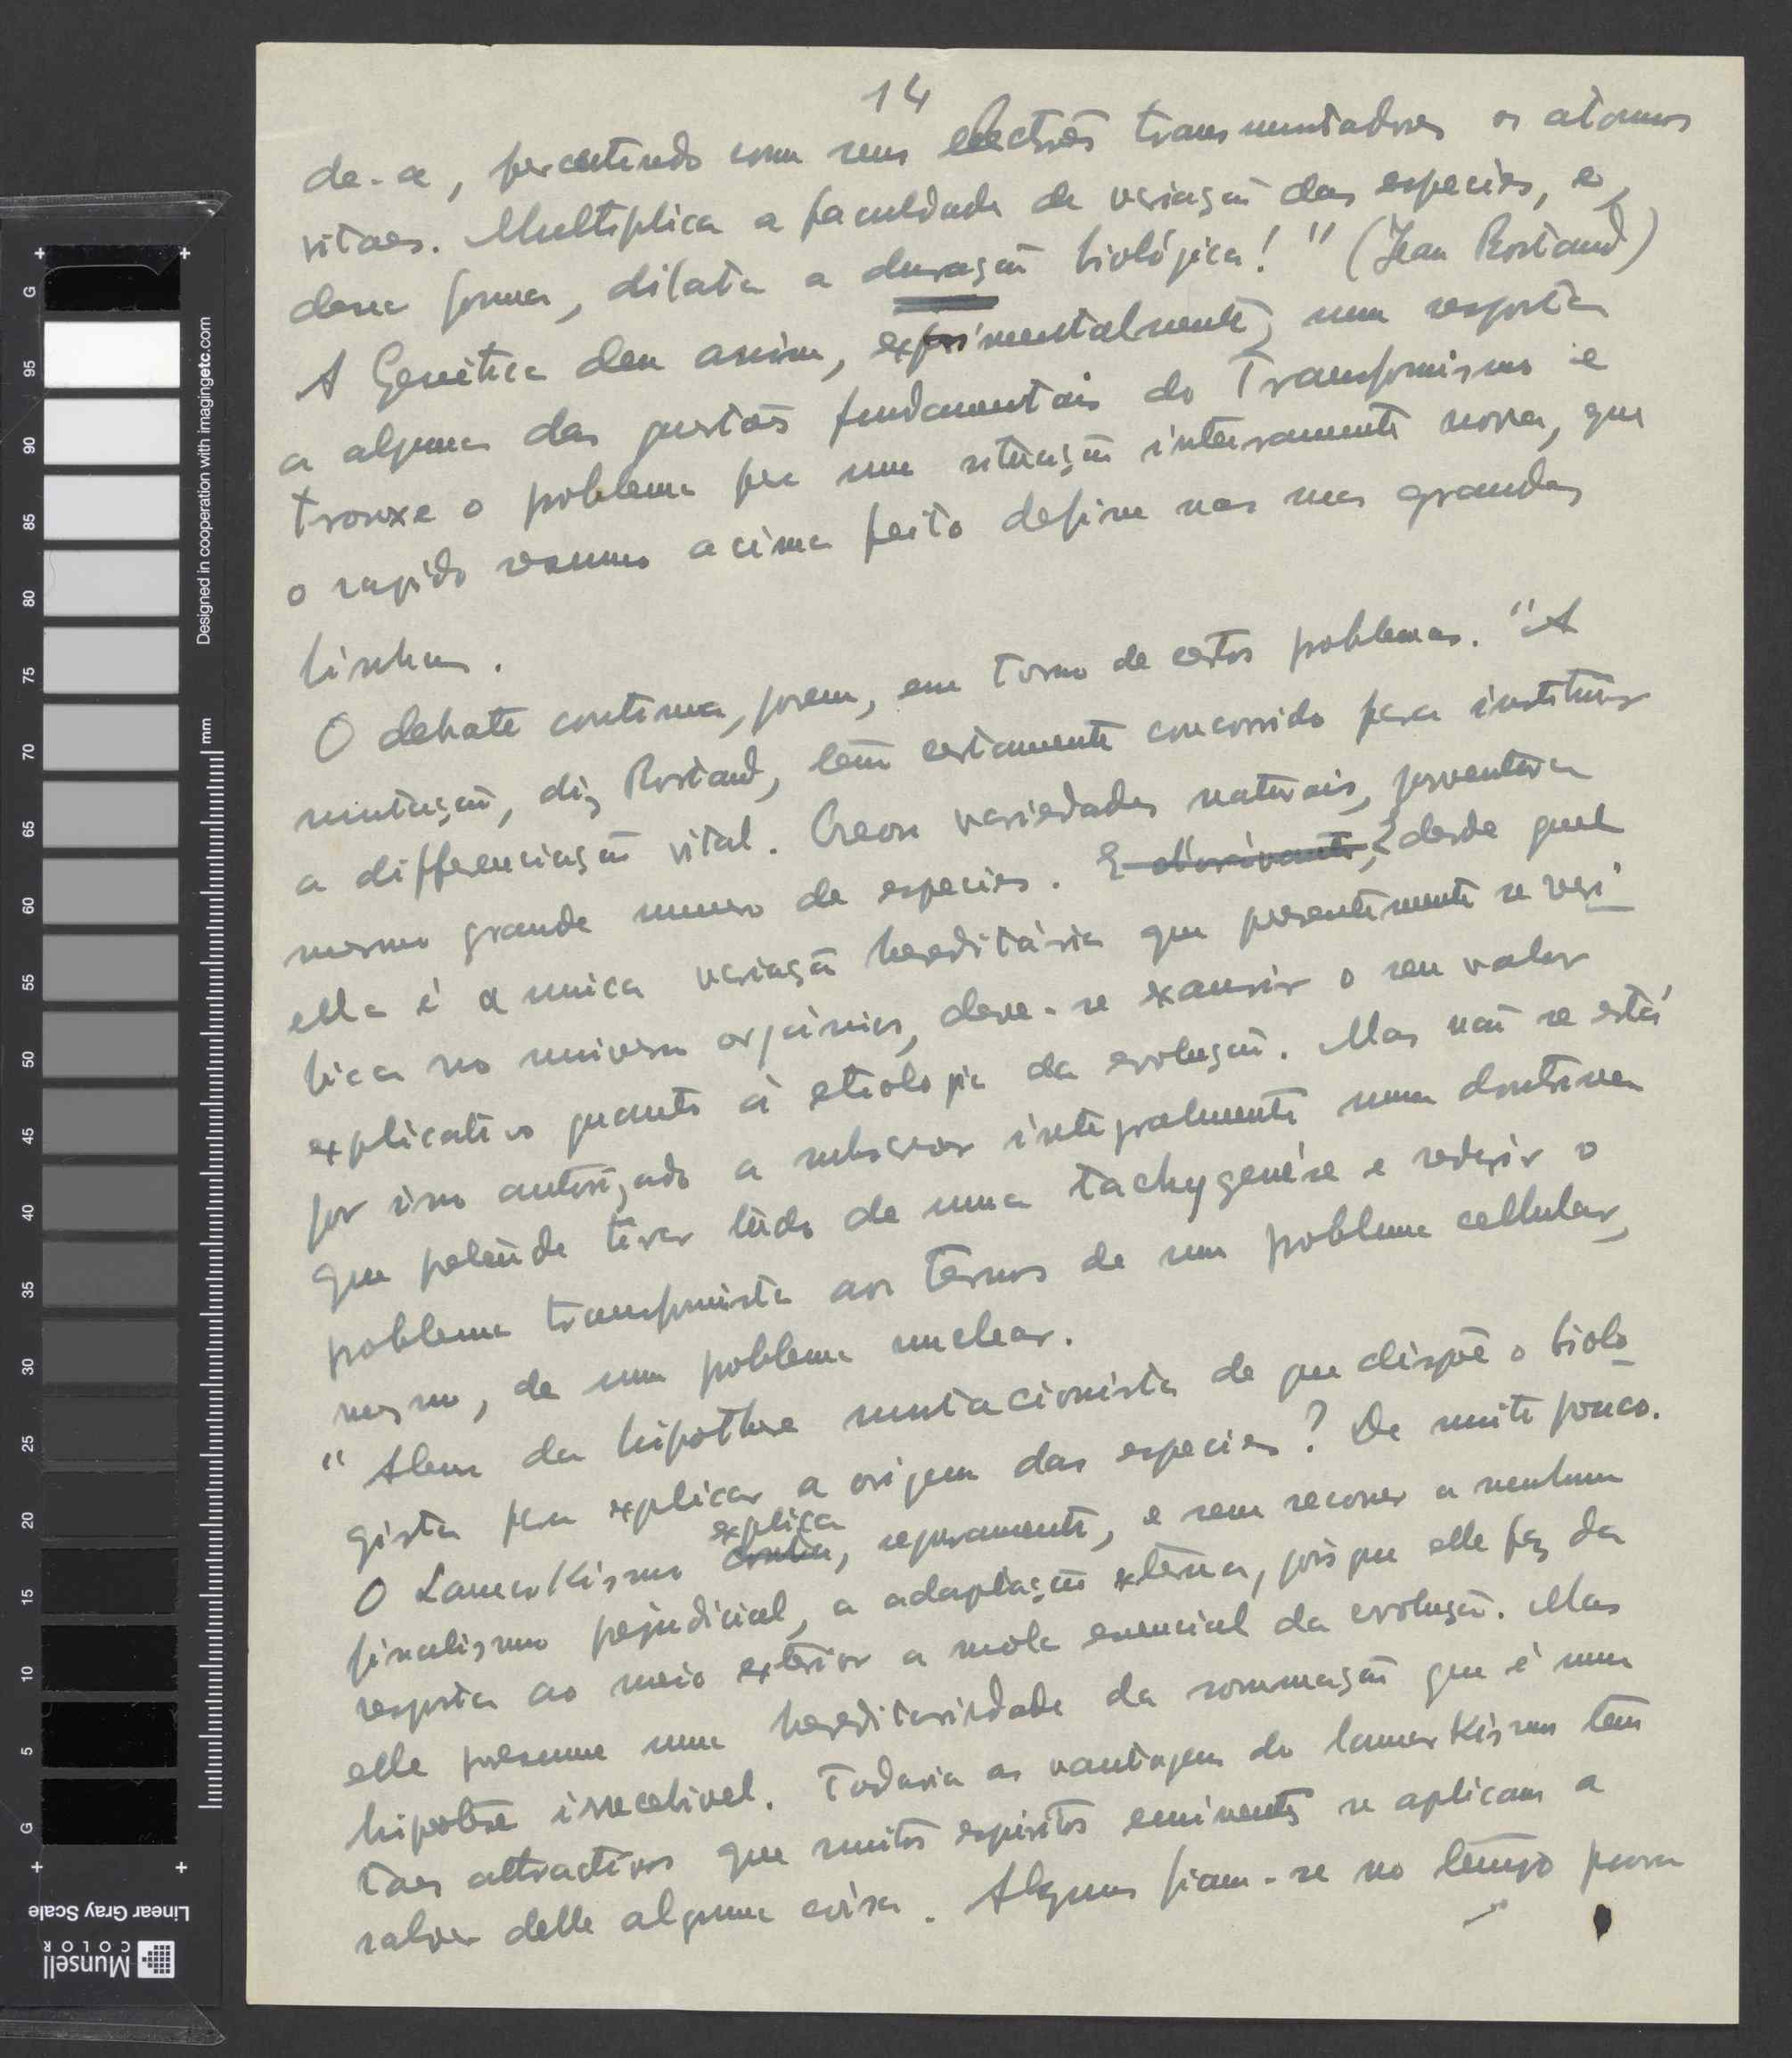 14
de-a, percutindo com seus electrões transmutadores os atomos
vitaes. Multiplica a faculdade de variação das especies, e,
dessa forma, dilata a duração biológica!" (Jean Rostand)
A Genetica deu assim, experimentalmente, uma resposta
a algumas das questões fundamentais do Transformismo e
trouxe o problema pra uma situação inteiramente nova, que
o rapido resumo acima feito define nas suas grandes
linhas.
O debate continua, porem, em torno de certos problemas. "A
mutação, diz Rostand, tem certamente concorrido para instituir
a differenciação vital. Creou variedades naturais, porventura
mesmo grande numero de especies. E d'oravante, desde que
ella é a unica variação hereditária que presentemente se veri
fica no universo orgánico, deve-se exaurir o seu valor
explicativo quanto à etiologia da evolução. Mas não se está
por isso autorizado a subscrever integralmente uma doutrina
que pretende tirar tudo de uma tachygenése e reduzir o
problema transformista aos termos de um problema cellular,
mesmo, de um problema nuclear.
"Alem da hipothese mutacionista de que dispõe o biolo
gista pra explicar a origem das especies? De muito pouco.
explica
O Lamarkismo, seguramente, e sem recorrer a nenhum
finalismo prejudicial, a adaptação externa, pois que elle faz da
resposta ao meio exterior a mola essencial da evolução. Mas
elle presume uma hereditariedade da sommação que é uma
hipotese irrecebivel. Todavia as vantagens do lamarkismo tem
taes attractivos que muitos espiritos eminentes se aplicam a
salvar delle alguma coisa. Alguns fiam-se no tempo para
Designed in cooperation with imagingetc.com
mm
G
95
90
85
80
75
70
65
60
55
50
45
40
35
30
25
20
15
10
5
G
Linear Gray Scale
Munsell
COLOR